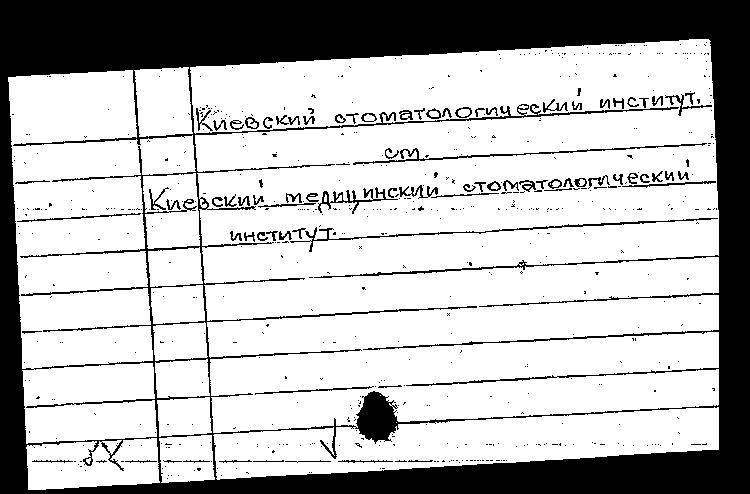 Киевский стоматологический институт.
ст.
Киевский медицинский стоматологический
институт.